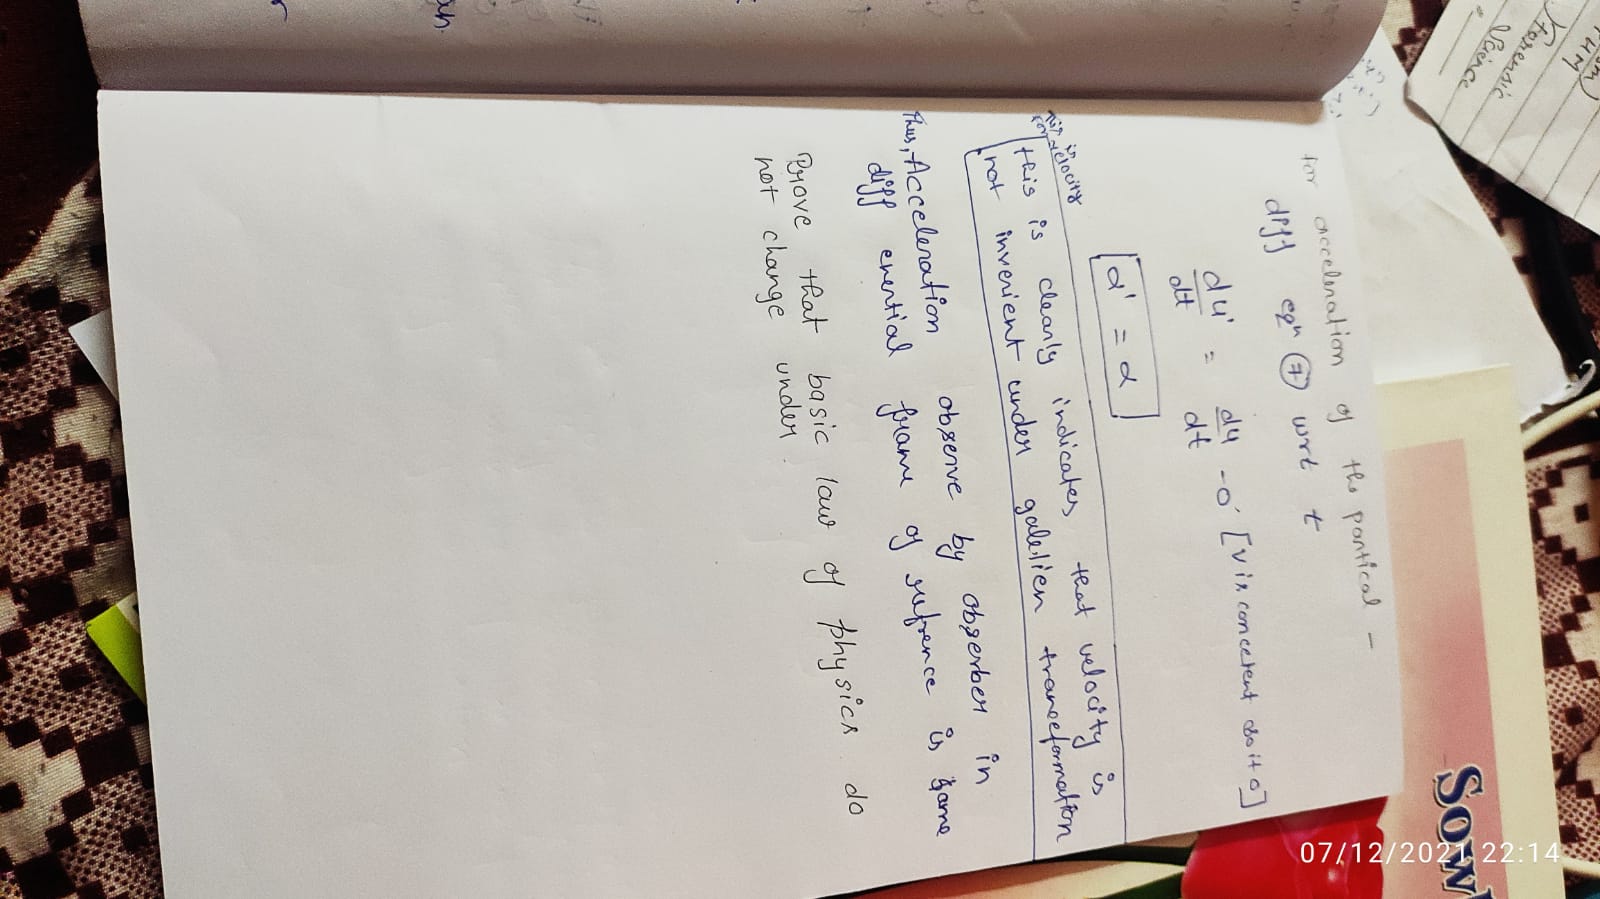 for acceleration of the partical -
diff eqn ⑦ wrt t
du'/dt = du/dt - 0 [v is concetent so it 0]
a' = a
this is clearly indicates that velocity is
not invenient under galelien transeformation
in velocity
Thus, Acceleration observe by obserber in
diff enertial frame of refrence is same
Prove that basic law of physics do
not change under.
Forensic
Science
Sow
07/12/2021 22:14